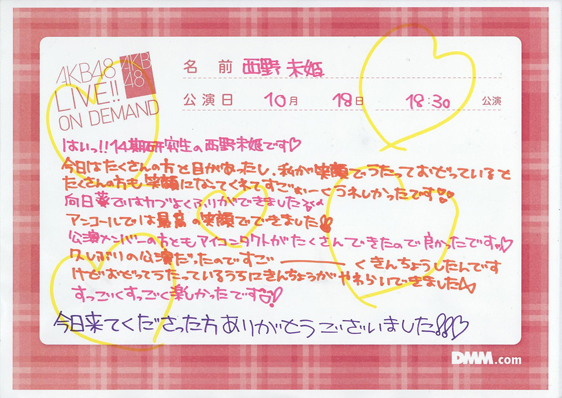 AKB48
LIVE!!
ON DEMAND
AKB
48
名前 西野 未姫
公演日 10月 18日 18:30 公演
はいっ!!14期研究生の西野未姫です♡
今日はたくさんの方と目があったし、私が笑顔でうたっておどっていると
たくさんの方も笑顔になってくれてすごぉーくうれしかったです
向日葵では力づよくふりができました
アンコールでは最高の笑顔でできました
公演メンバーの方ともアイコンタクトがたくさんできたので良かったです
久しぶりの公演だったのですご―――くきんちょうしたんです
けどおどってうたっているうちにきんちょうがやわらいできました
すっごくすっごく楽しかったです
今日来てくださった方ありがとうございました!!♡
DMM.com